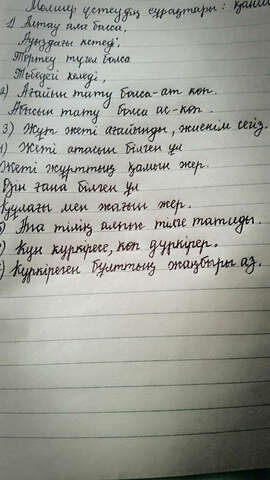 Мөлшер үстеудің сұрақтары: қанша
1) Алтау ала болса,
Ауыздағы кетеді,
Төртеу түгел болса
Төбедегі келеді,
2) Ағайын тату болса-ат көп.
Абысын тату болса ас-көп.
3) Жұт жеті ағайынды, жиенім сегіз.
Жеті атасын білген ұл
Жеті жұрттың қамын жер.
Өзін ғана білген ұл
Құлағы мен жағын жер.
Ана тілің алтын тілге татиды.
Күн күркіресе, көп дүркірер.
Күркіреген бұлттың жаңбыры аз.